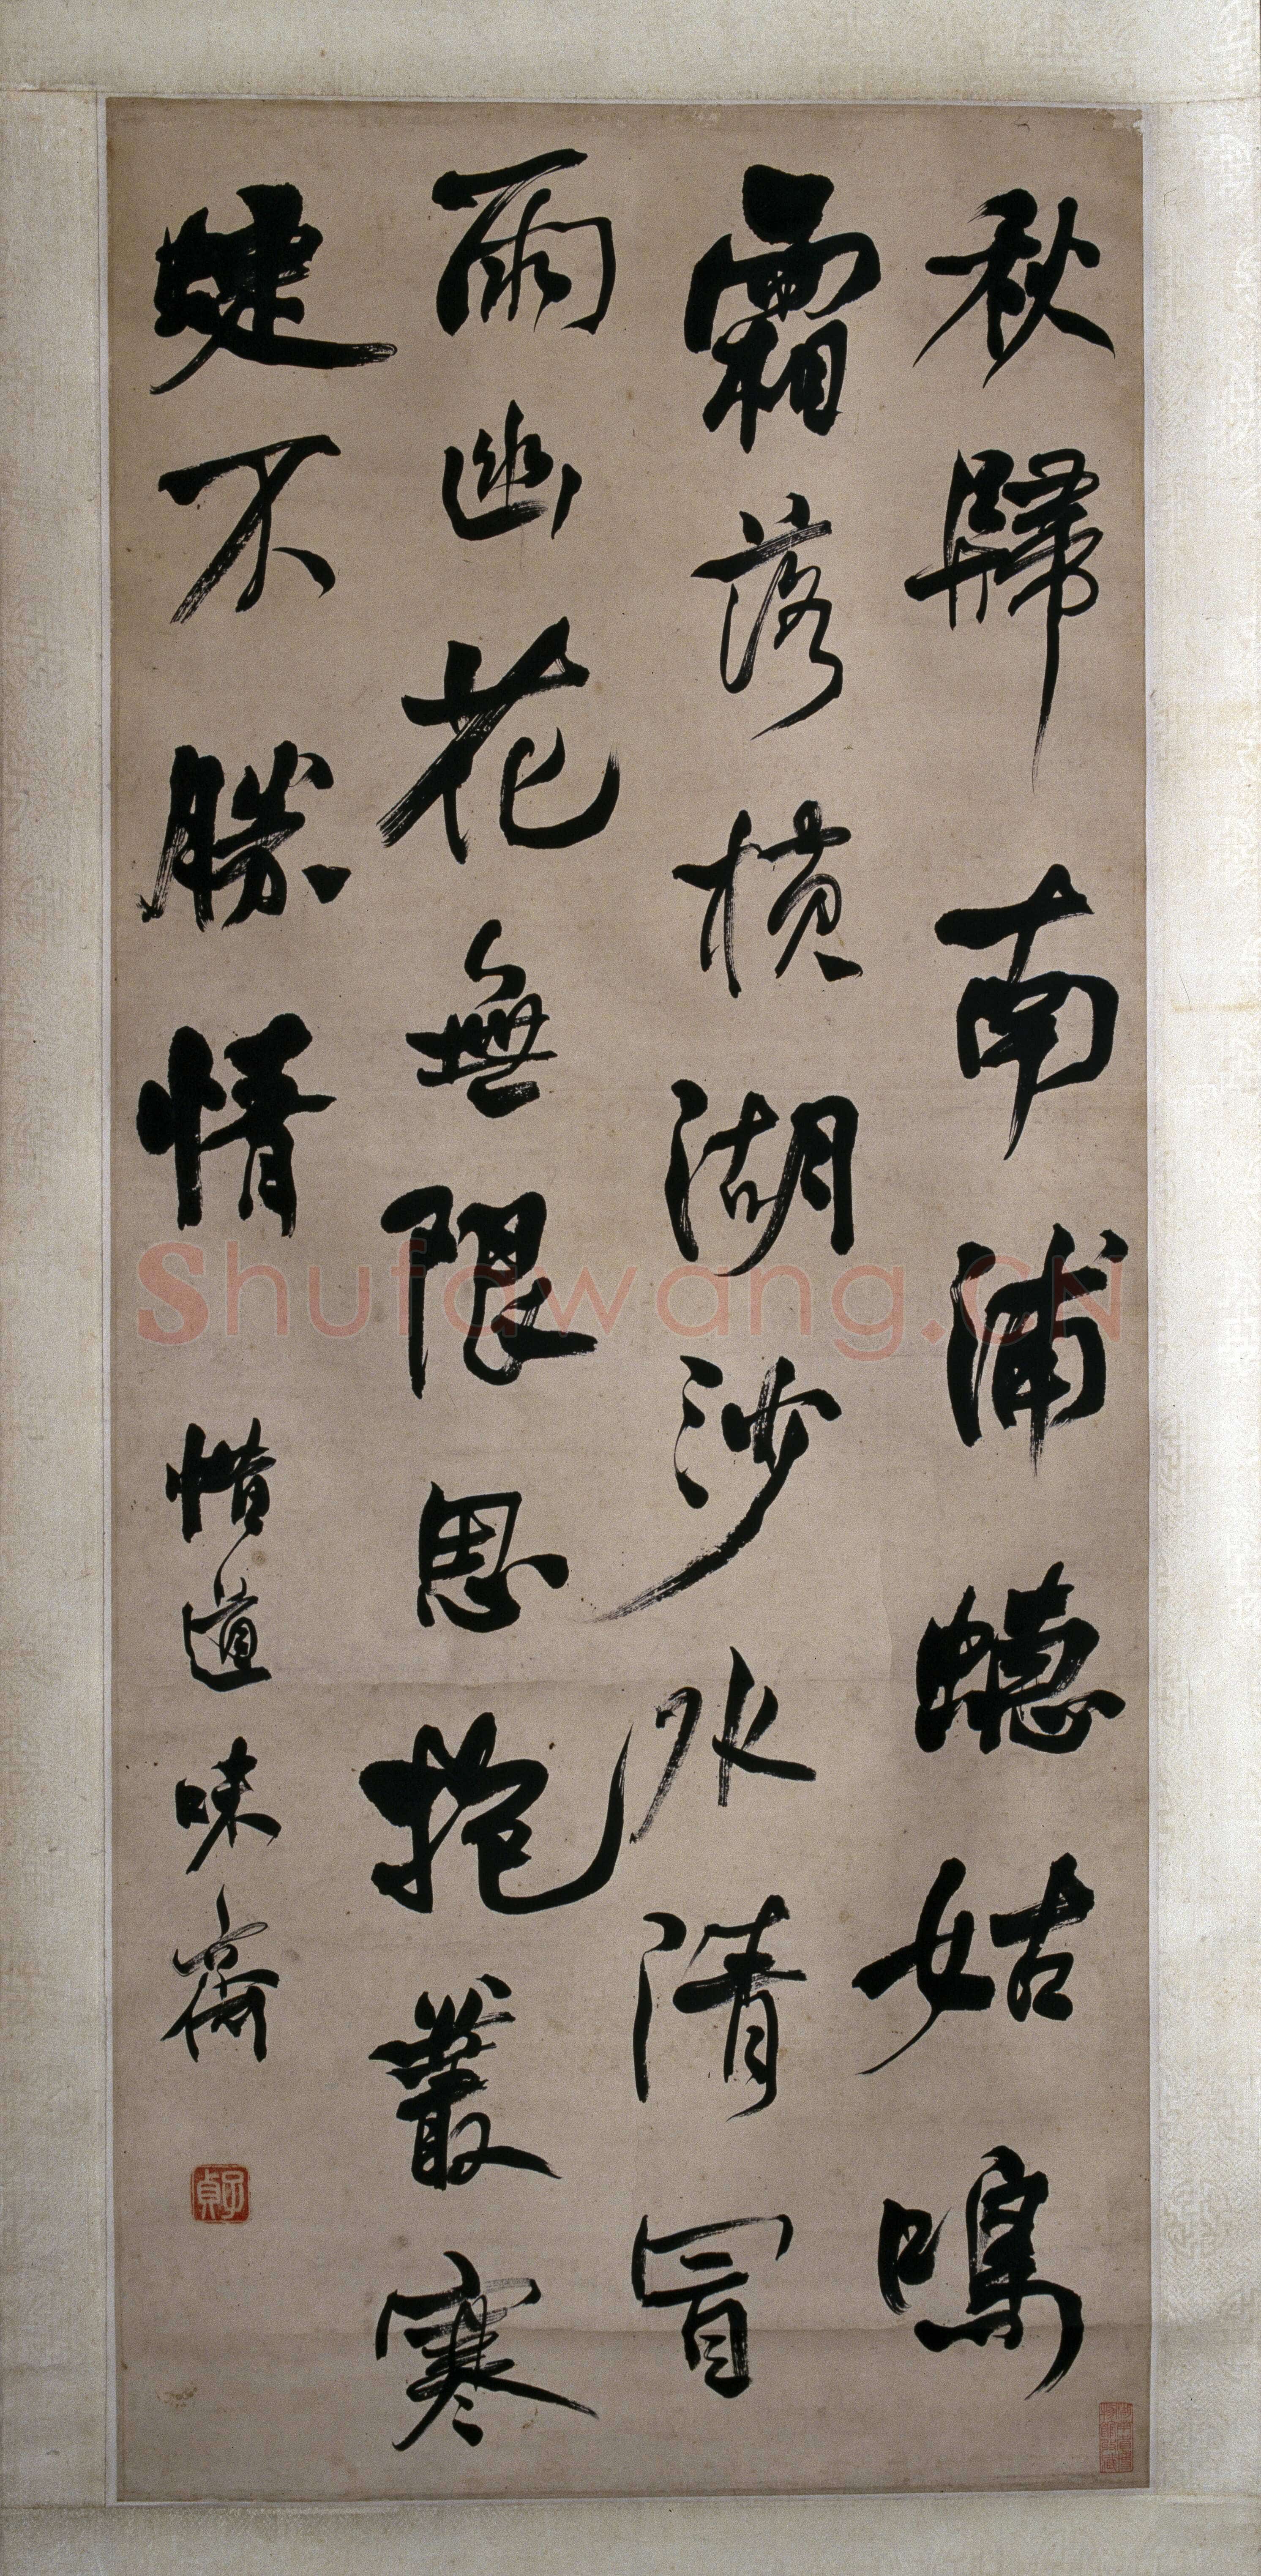 秋歸南浦蟪姑鳴
霜落橫湖沙水清冒
雨幽花無限思抱叢寒
蜨不勝情
惜道味齋
子貞
Shufawang.CN